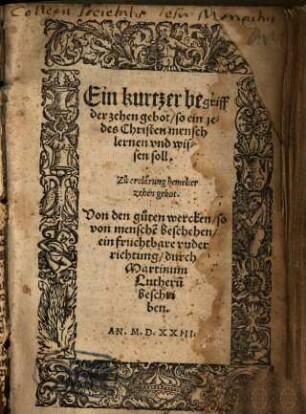 Collegii Societatis Jesu Monachii
Ein kurtzer begriff
der zehen gebot/so ein je-
des Christen mensch
lernen vnd wis-
sen soll.
Zů erclärung hernacher
zehen gebot.
Von den gůten wercken/so
von menschẽ beschehen/
ein fruchtbare vnder
richtung/durch
Martinum
Lutherũ
beschri
ben.
AN. M. D. XXIII.